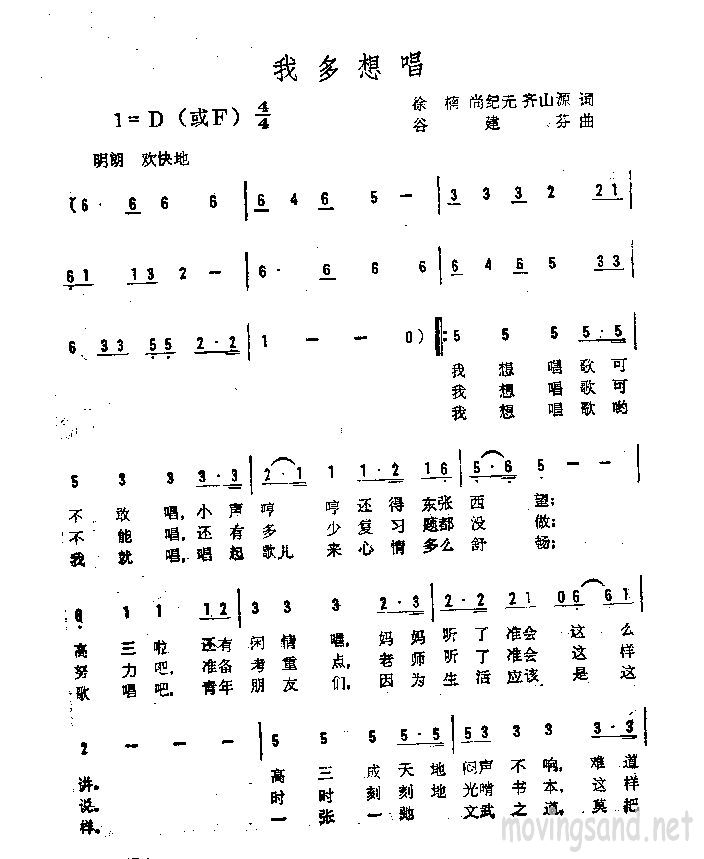 我多想唱
1=D（或F）4/4
徐楠 尚纪元 齐山源 词
谷建芬 曲
明朗 欢快地
(6· 6 6 6 | 6 4 6 5 - | 3 3 3 2 2 1 |
6 1 1 3 2 - | 6· 6 6 6 | 6 4 6 5 3 3 |
6 3 3 5 5 2·2 | 1 - - 0) |: 5 5 5 5·5
我想唱歌可
我想唱歌可
我想唱歌哟
5 3 3 3·3 | 2·1 1 1·2 1 6 | 5·6 5 - -
不敢唱，小声哼 哼还得东张西望；
不能唱，还有多 少复习题都没做；
我就唱，唱起歌儿 来心情多么舒畅；
6 1 1 1 2 | 3 3 3 2·3 | 2·2 2 1 0 6 6 1
高三啦 还有闲情唱，妈妈听了准会这么
努力吧，准备考重点，老师听了准会这样
歌唱吧，青年朋友们，因为生活应该是这
2 - - - | 5 5 5 5·5 | 5 3 3 3 3·3
讲。 高三成天地闷声不响，难道
说。 时时刻刻地光啃书本，这样
样。 一张一弛 文武之道，莫把
movingsand.net